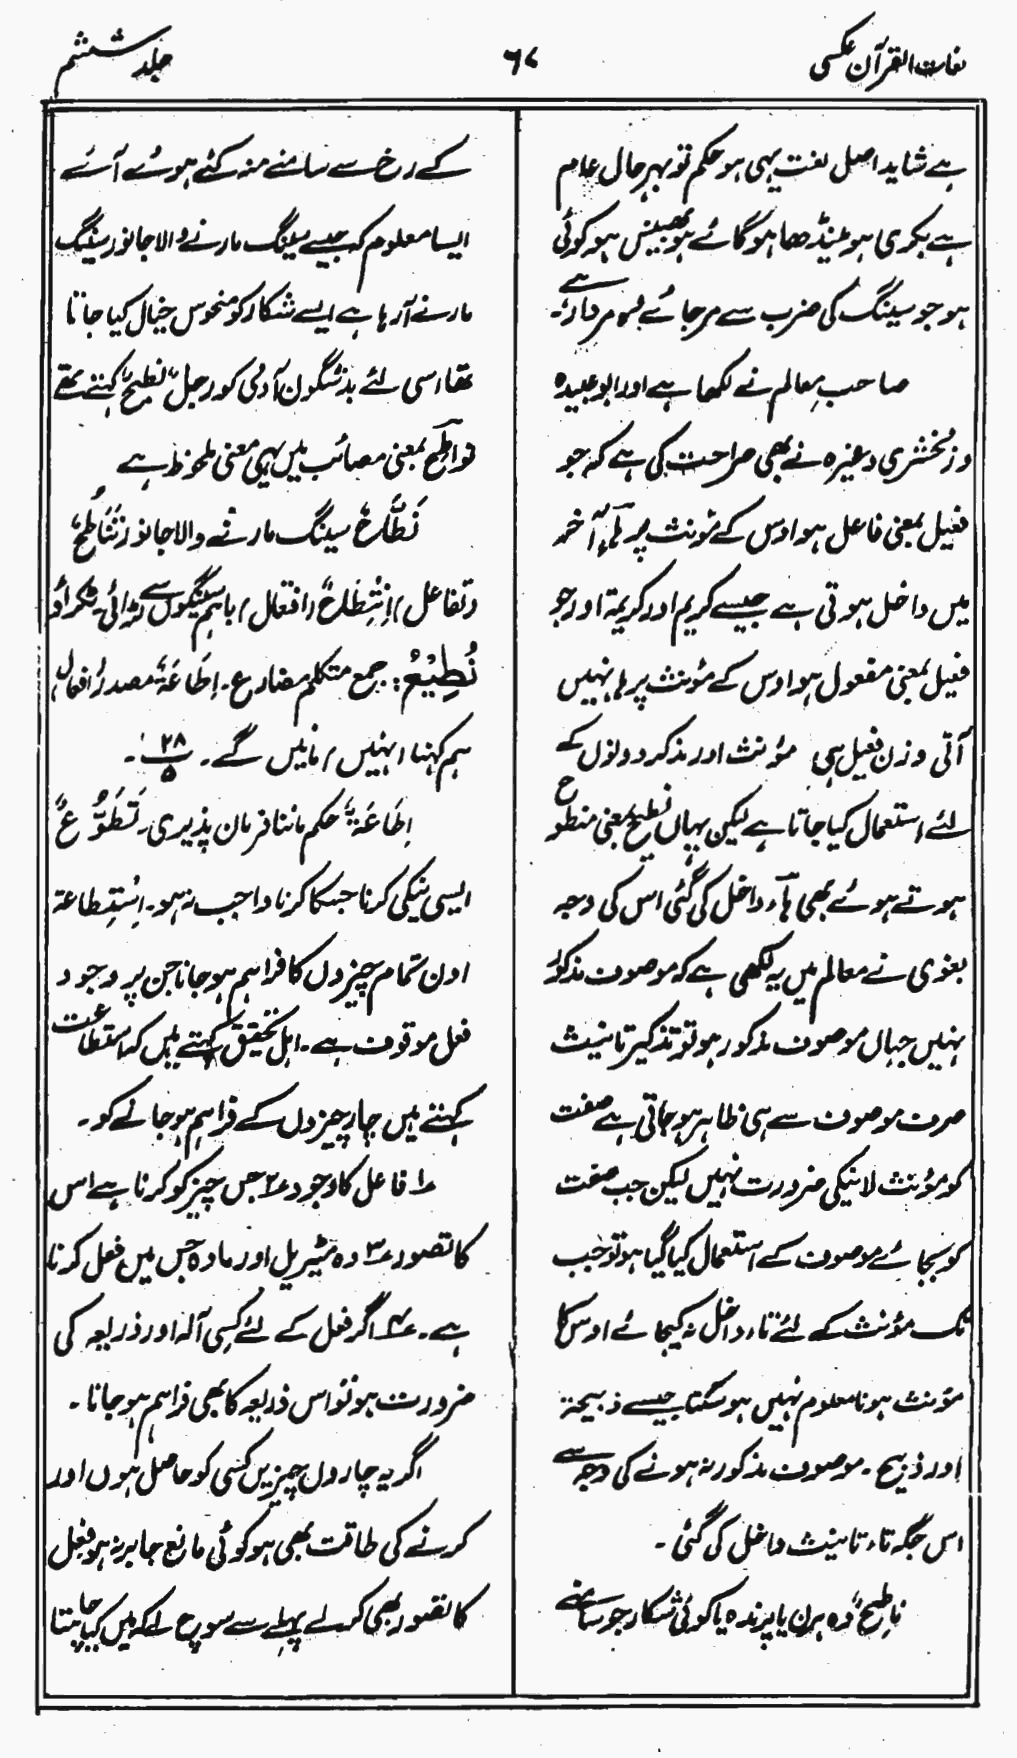 لغات القرآن عکسی
۶۷
جلد ششم
ہے شاید اصل لغت یہی ہو حکم تو بہرحال عام
ہے بکری ہو مینڈھا ہو گائے ہو بھینس ہو کوئی
ہو جو سینگ کی ضرب سے مرجائے بس مردار ہے۔
صاحب معالم نے لکھا ہے اور ابوعبیدہ
و زمخشری وغیرہ نے بھی صراحت کی ہے کہ جو
فعیل بمعنی فاعل ہو اوس کے مؤنث پر ہاء آخر
میں داخل ہوتی ہے جیسے کریم اور کریمۃ اور جو
فعیل بمعنی مفعول ہو اوس کے مؤنث پر ہا نہیں
آتی وزن فعیل ہی مؤنث اور مذکر دونوں کے
لئے استعمال کیا جاتا ہے لیکن یہاں نطیح بمعنی منطوح
ہوتے ہوئے بھی ہاء داخل کی گئی اس کی وجہ
بغوی نے معالم میں یہ لکھی ہے کہ موصوف مذکور
نہیں جہاں موصوف مذکور ہو تو تذکیر تانیث
صرف موصوف سے ہی ظاہر ہو جاتی ہے صفت
کو مؤنث لانیکی ضرورت نہیں لیکن جب صفت
کو بجائے موصوف کے استعمال کیا گیا ہو تو جب
تک مؤنث کے لئے تاء داخل نہ کیجائے اوس کا
مؤنث ہونا معلوم نہیں ہو سکتا جیسے ذبیحۃ
اور ذبیح۔ موصوف مذکور نہ ہونے کی وجہ سے
اس جگہ تاء تانیث داخل کی گئی۔
ناطِحٌ وہ ہرن یا پرندہ یا کوئی شکار جو سامنے
کے رخ سے سامنے منہ کئے ہوئے آئے
ایسا معلوم کہ جیسے سینگ مارنے والا جانور سینگ
مارنے آرہا ہے ایسے شکار کو منحوس خیال کیا جاتا
تھا اسی لئے بدشگون آدمی کو رجل نطیحٌ کہتے تھے
نواطح بمعنی مصائب میں یہی معنی ملحوظ ہے
نَطَّاحٌ سینگ مارنے والا جانور تَنَاطُحٌ
(تفاعل) اِنْتِطَاحٌ (افتعال) باہم سینگوں سے لڑائی۔ ٹکراؤ
نُطِیْعُ: جمع متکلم مضارع۔ اِطَاعَۃٌ مصدر (افعال)
ہم کہنا (نہیں) مانیں گے۔ ۲۸/۵۔
اِطَاعَۃٌ حکم ماننا فرمان پذیری۔ تَطَوُّعٌ
ایسی نیکی کرنا جسکا کرنا واجب نہ ہو۔ اِسْتِطاعۃ
اون تمام چیزوں کا فراہم ہو جانا جن پر وجود
فعل موقوف ہے۔ اہل تحقیق کہتے ہیں کہ استطاعت
کہتے ہیں چار چیزوں کے فراہم ہوجانے کو۔
۱؎ فاعل کا وجود ۲؎ جس چیز کو کرنا ہے اس
کا تصور ۳؎ وہ مٹیریل اور مادہ جس میں فعل کرنا
ہے۔ ۴؎ اگر فعل کے لئے کسی آلہ اور ذریعہ کی
ضرورت ہو تو اس ذریعہ کا بھی فراہم ہو جانا۔
اگر یہ چاروں چیزیں کسی کو حاصل ہوں اور
کرنے کی طاقت بھی ہو کوئی مانع جابر نہ ہو فعل
کا تصور بھی کرلے پہلے سے سوچ لے کہ میں کیا چاہتا